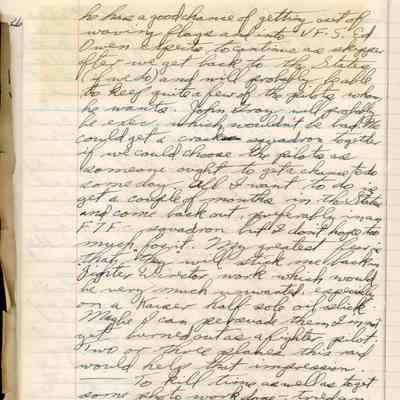 he has a good chance of getting out of
waving flags and into VF-5. Ed
Owen expects to continue as skipper
after we get back to the States
(if we do) and will probably be able
to keep quite a few of the pilots whom
he wants. John Gray will probably
be exec which wouldn't be bad. We
could get a crack squadron together
if we could choose the pilots as
someone ought to get a chance to do
some day. All I want to do is
get a couple of months in the States
and come back out, preferably in any
F-7-F squadron but I don't hope too
much for it. My greatest fear is
that "They" will stick me back in
Fighter Director work which would
be very much unwanted, especially
on a Kaiser half sole oil slick.
Maybe I can persuade them I'm not
yet burned out as a fighter pilot.
Two or three planes this raid
would help that impression.
To kill time as well as to get
some photo work done